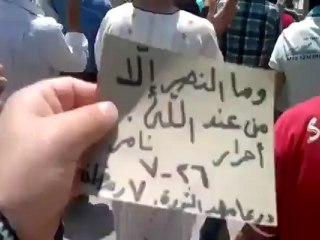 وما النصر إلّا
من عند اللّه
أحرار نامر
٢٦-٧
درعا مهد الثورة، ٧ رمضان